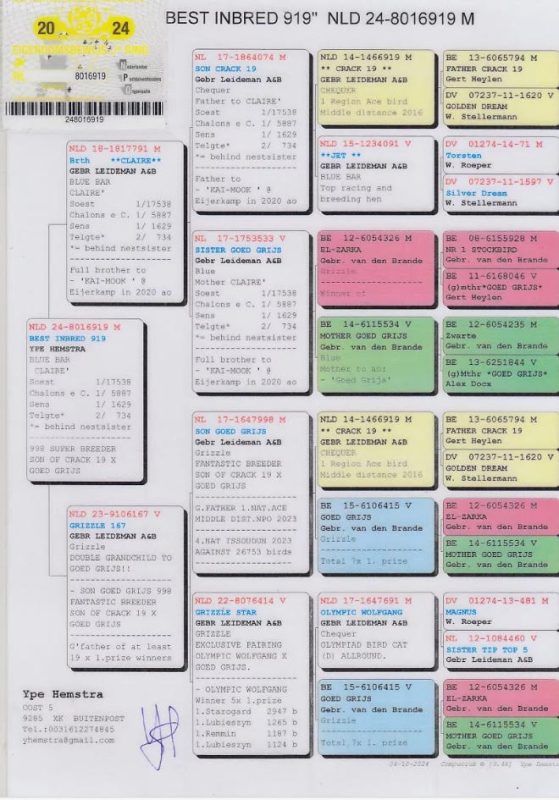 BEST INBRED 919" NLD 24-8016919 M
20 24
8016919
248016919
NLD 24-8016919 M
BEST INBRED 919
YPE HEMSTRA
BLUE BAR
CLAIRE'
Soest 1/17538
Chalons e C. 1/ 5887
Sens 1/ 1629
Telgte* 2/ 734
*= behind nestsister
998 SUPER BREEDER
SON OF CRACK 19 X
GOED GRIJS
NLD 18-1817791 M
Brth **CLAIRE**
GEBR LEIDEMAN A&B
BLUE BAR
CLAIRE'
Soest 1/17538
Chalons e C. 1/ 5887
Sens 1/ 1629
Telgte* 2/ 734
*= behind nestsister
Full brother to
- 'KAI-MOOK ' @
Eijerkamp in 2020 ao
NLD 23-9106167 V
GRIZZLE 167
GEBR LEIDEMAN A&B
Grizzle
DOUBLE GRANDCHILD TO
GOED GRIJS!!
- SON GOED GRIJS 998
FANTASTIC BREEDER
SON OF CRACK 19 X
GOED GRIJS
G'father of at least
19 x 1.prize winners
NL 17-1864074 M
SON CRACK 19
Gebr Leideman A&B
Chequer
Father to CLAIRE'
Soest 1/17538
Chalons e C. 1/ 5887
Sens 1/ 1629
Telgte* 2/ 734
*= behind nestsister
Father to
- 'KAI-MOOK ' @
Eijerkamp in 2020 ao
NL 17-1753533 V
SISTER GOED GRIJS
Gebr Leideman A&B
Blue
Mother CLAIRE'
Soest 1/17538
Chalons e C. 1/ 5887
Sens 1/ 1629
Telgte* 2/ 734
*= behind nestsister
Full brother to
- 'KAI-MOOK ' @
Eijerkamp in 2020 ao
NL 17-1647998 M
SON GOED GRIJS
Gebr Leideman A&B
Grizzle
FANTASTIC BREEDER
SON OF CRACK 19 X
GOED GRIJS
G.FATHER 1.NAT.ACE
MIDDLE DIST.NPO 2023
4.NAT ISSOUDUN 2023
AGAINST 26753 birds
NLD 22-8076414 V
GRIZZLE STAR
GEBR LEIDEMAN A&B
GRIZZLE
EXCLUSIVE PAIRING
OLYMPIC WOLFGANG X
GOED GRIJS.
- OLYMPIC WOLFGANG
Winner 5x 1.prize
1.Starogard 2947 b
1.Lubieszyn 1265 b
1.Remmin 1187 b
1.Lubieszyn 1124 b
NLD 14-1466919 M
** CRACK 19 **
GEBR LEIDEMAN A&B
CHEQUER
1 Region Ace bird
Middle distance 2016
NLD 15-1234091 V
**JET **
GEBR LEIDEMAN A&B
BLUE BAR
Top racing and
breeding hen
BE 12-6054326 M
EL-ZARKA
Gebr. van den Brande
Grizzle
Winner of
BE 14-6115534 V
MOTHER GOED GRIJS
Gebr. van den Brande
Blue
Mother to ao:
- 'Goed Grijs'
NLD 14-1466919 M
** CRACK 19 **
GEBR LEIDEMAN A&B
CHEQUER
1 Region Ace bird
Middle distance 2016
BE 15-6106415 V
GOED GRIJS
Gebr. van den Brande
Grizzle
Total 7x 1. prize
NLD 17-1647691 M
OLYMPIC WOLFGANG
GEBR LEIDEMAN A&B
Chequer
OLYMPIAD BIRD CAT
(D) ALLROUND.
BE 15-6106415 V
GOED GRIJS
Gebr. van den Brande
Grizzle
Total 7x 1. prize
BE 13-6065794 M
FATHER CRACK 19
Gert Heylen
DV 07237-11-1620 V
GOLDEN DREAM
W. Stellermann
DV 01274-14-71 M
Torsten
W. Roeper
DV 07237-11-1597 V
Silver Dream
W. Stellermann
BE 08-6155928 M
NR 1 STOCKBIRD
Gebr. van den Brande
BE 11-6168046 V
(g)mthr*GOED GRIJS*
Gert Heylen
BE 12-6054235 M
Zwarte
Gebr. van den Brande
BE 13-6251844 V
(g)Mthr *GOED GRIJS*
Alex Docx
BE 13-6065794 M
FATHER CRACK 19
Gert Heylen
DV 07237-11-1620 V
GOLDEN DREAM
W. Stellermann
BE 12-6054326 M
EL-ZARKA
Gebr. van den Brande
BE 14-6115534 V
MOTHER GOED GRIJS
Gebr. van den Brande
DV 01274-13-481 M
MAGNUS
W. Roeper
NL 12-1084460 V
SISTER TIP TOP 5
Gebr Leideman A&B
BE 12-6054326 M
EL-ZARKA
Gebr. van den Brande
BE 14-6115534 V
MOTHER GOED GRIJS
Gebr. van den Brande
Ype Hemstra
OOST 5
9285 XK BUITENPOST
Tel.:0031612274845
yhemstra@gmail.com
04-10-2024 Compuclub © [9.46] Ype Hemstra